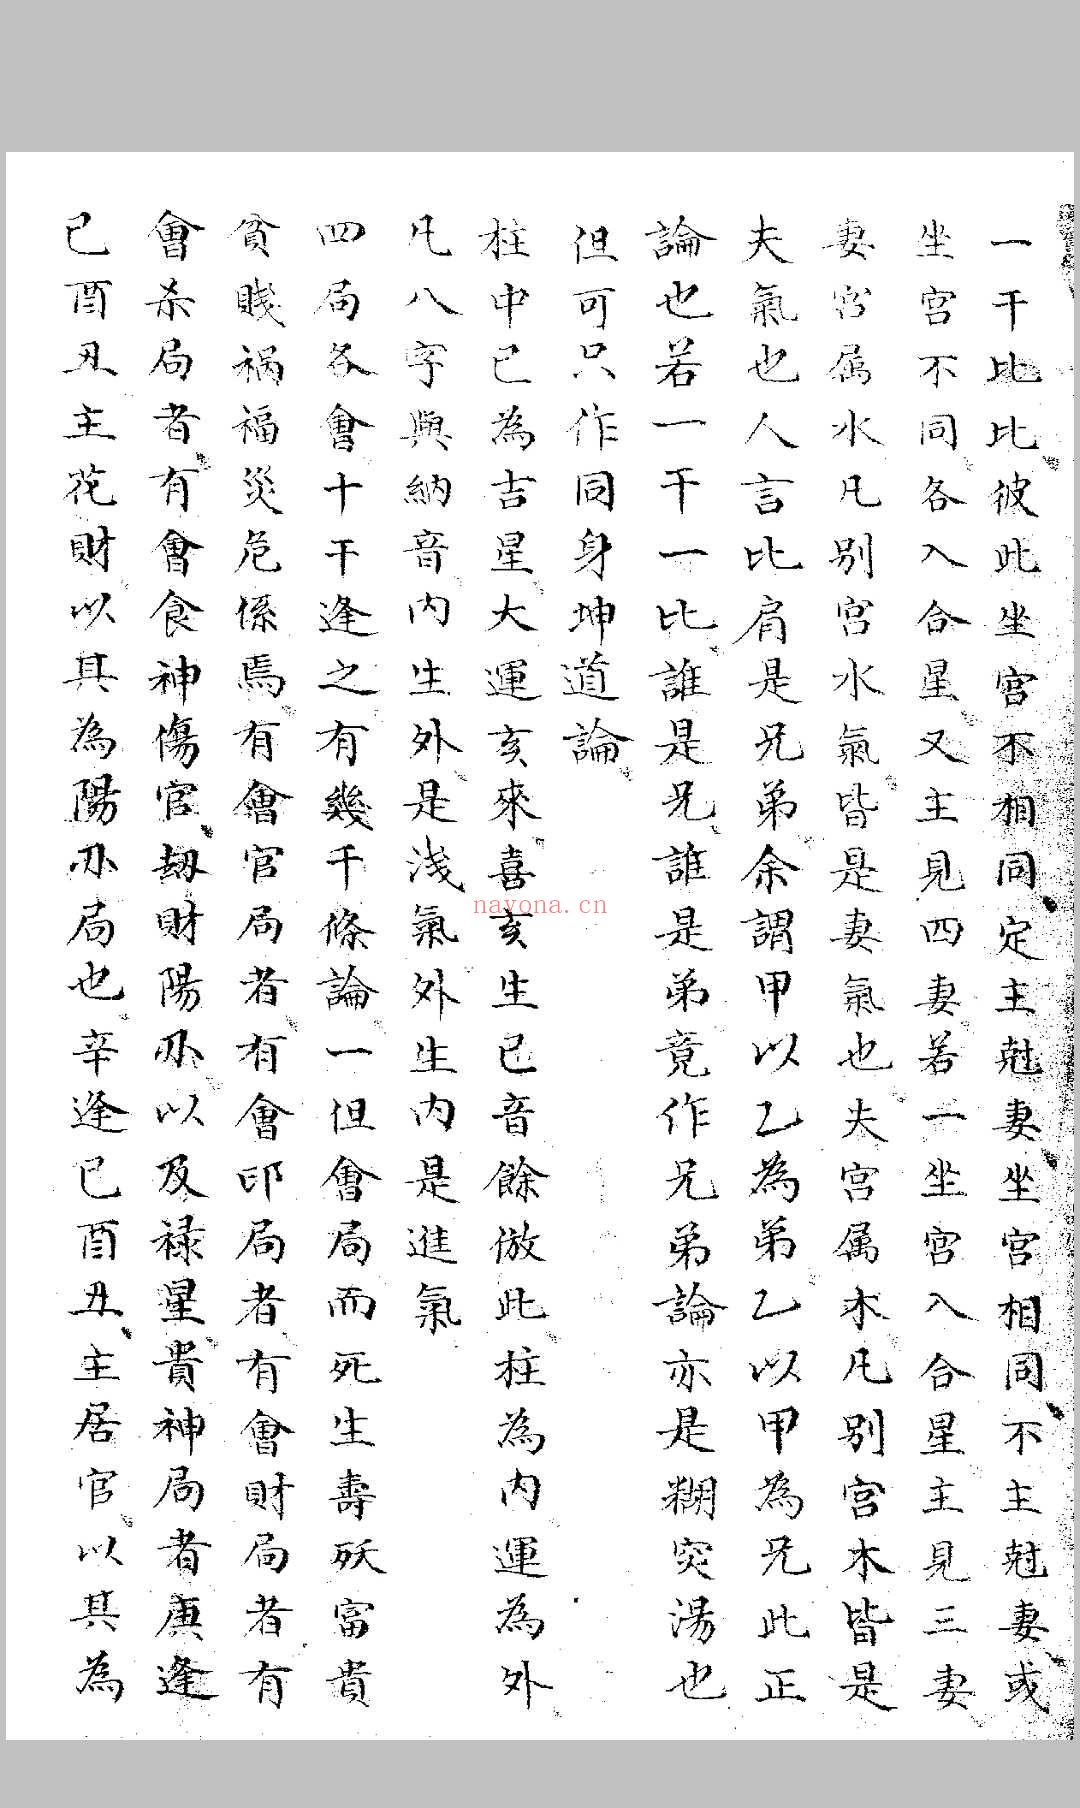 一干比比彼此坐宫不相同定主尅妻坐宫相同不主尅妻或
坐宫不同各入合星又主見四妻若一坐宫入合星主見三妻
妻宫属水凡别宫水氣皆是妻氣也夫宫属木凡别宫木皆是
夫氣也人言比肩是兄弟余謂甲以乙為弟乙以甲為兄此正
論也若一干一比誰是兄誰是弟竟作兄弟論亦是糊突湯也
但可只作同身坤道論
柱中已為吉星大運亥來喜亥生已音餘倣此柱為内運為外
凡八字與納音内生外是浅氣外生内是進氣
四局各會十干逢之有幾千條論一但會局而死生壽殀富貴
貧賤禍福災危係焉有會官局者有會印局者有會財局者有
會杀局者有會食神傷官劫財陽刃以及禄星貴神局者庚逢
已酉丑主花財以其為陽刃局也辛逢已酉丑主居官以其為
nayona.cn